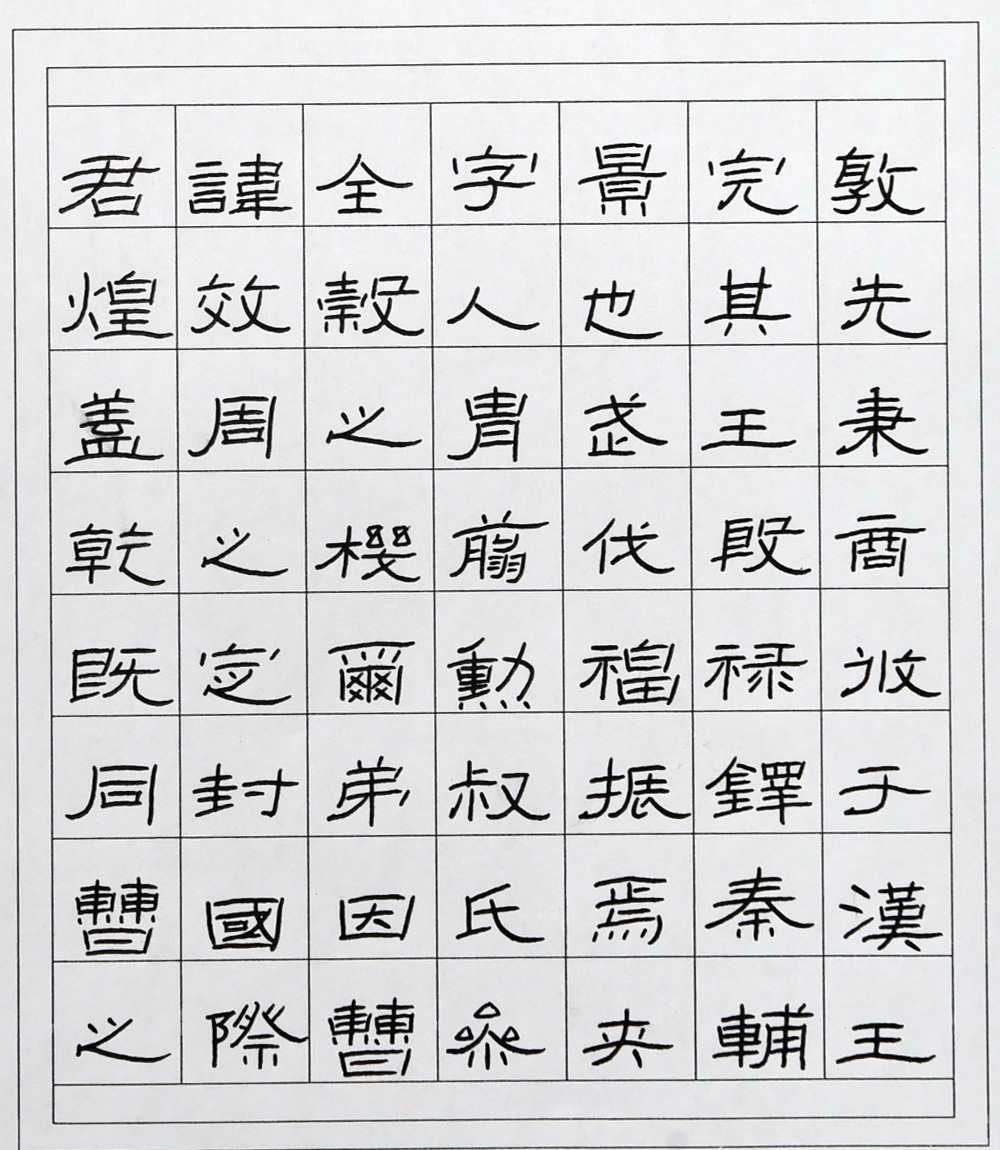 君諱全字景完敦
煌效穀人也其先
蓋周之胄武王秉
乾之機翦伐殷商
既定爾勳福祿攸
同封弟叔振鐸于
曹國因氏焉秦漢
之際曹參夾輔王